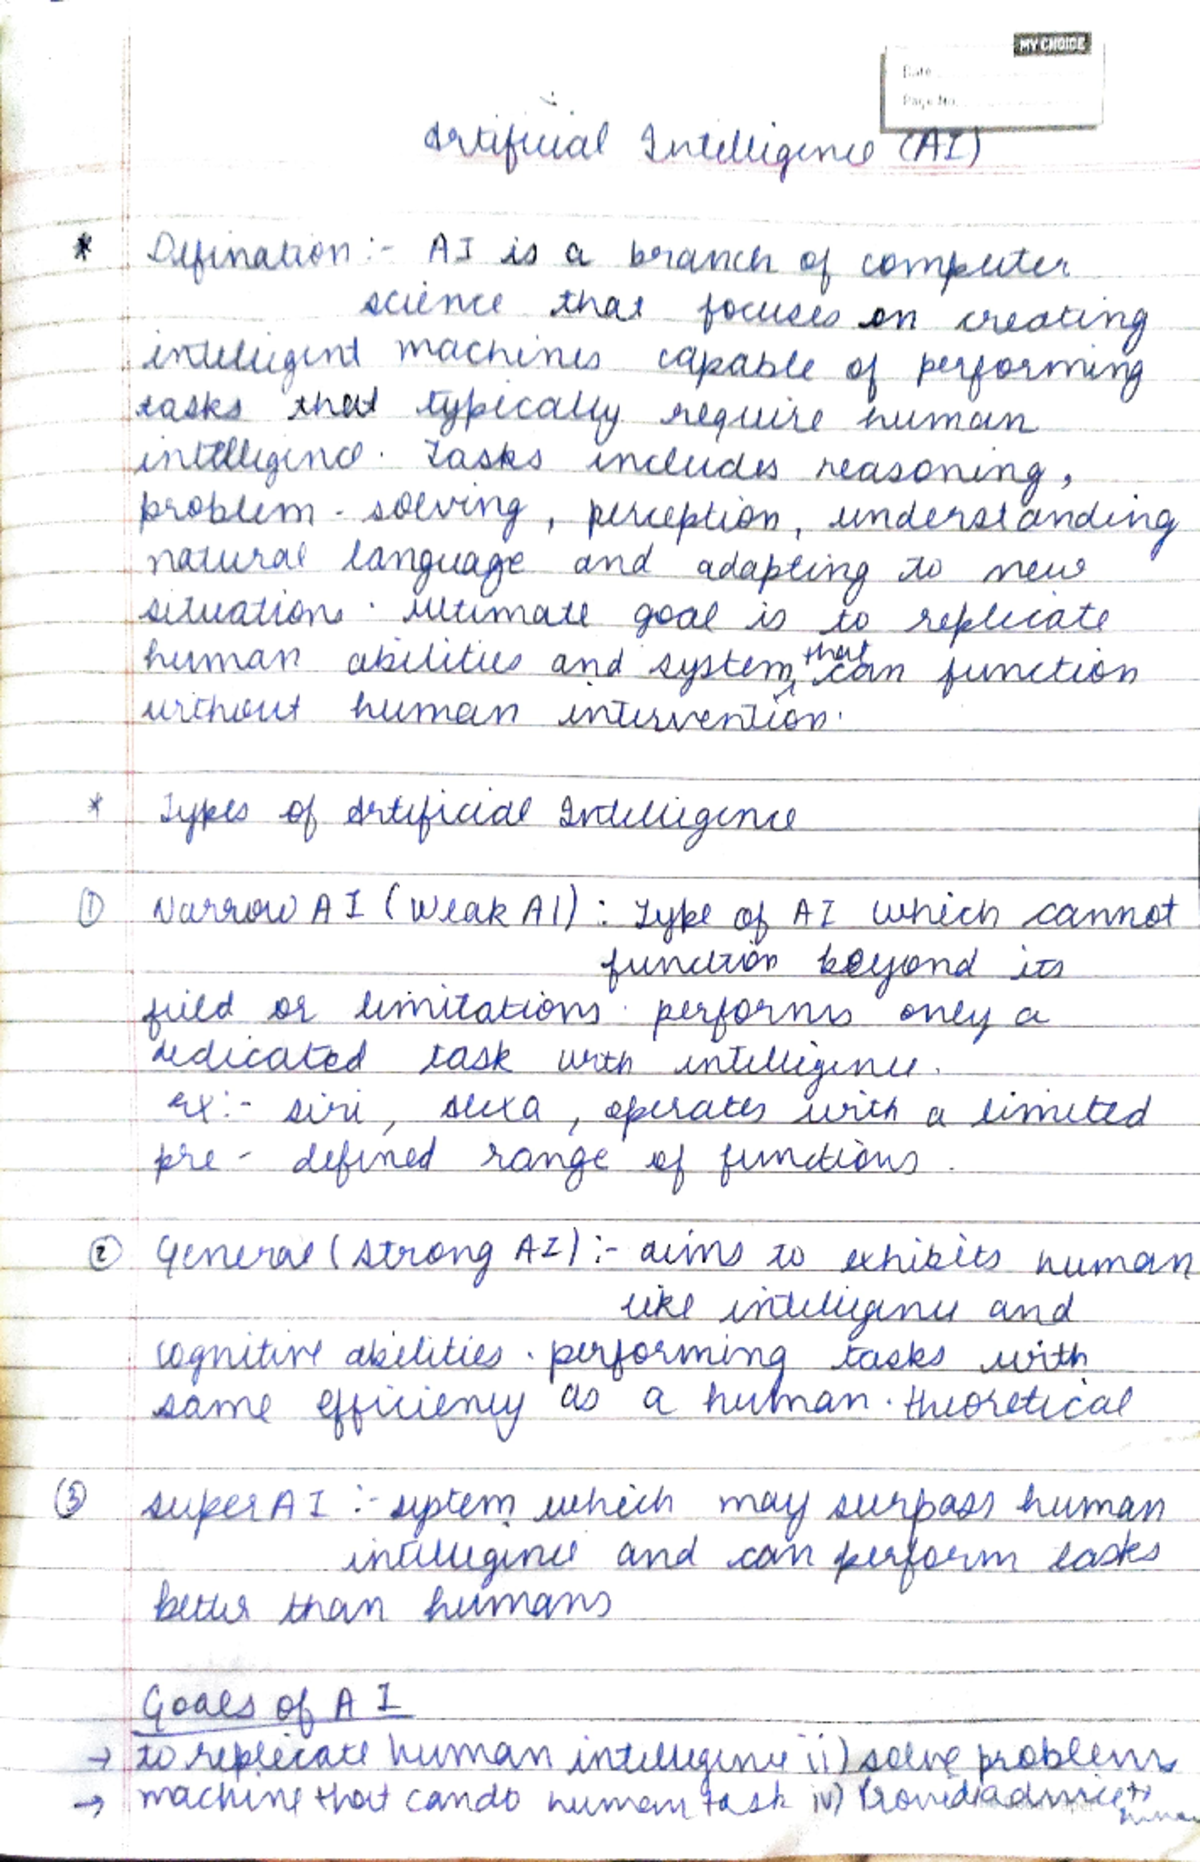 MY CHOICE
Date
Page No.
Artificial Intelligence (AI)
* Defination :- AI is a branch of computer
science that focuses on creating
intelligent machines capable of performing
tasks that typically require human
intelligence. Tasks includes reasoning,
problem - solving, perception, understanding
natural language and adapting to new
situations. Ultimate goal is to replicate
human abilities and system that can function
without human intervention.
* Types of Artificial Intelligence
① Narrow AI (Weak AI) : Type of AI which cannot
function beyond its
field or limitations. performs only a
dedicated task with intelligence.
ex:- siri, alexa, operates with a limited
pre - defined range of functions.
② General (strong AI) :- aims to exhibits human
like intelligence and
cognitive abilities. performing tasks with
same efficiency as a human. theoretical
③ super AI :- system which may surpass human
intelligence and can perform tasks
better than humans
Goals of AI
→ to replicate human intelligence ii) solve problems
→ machine that can do human task iv)